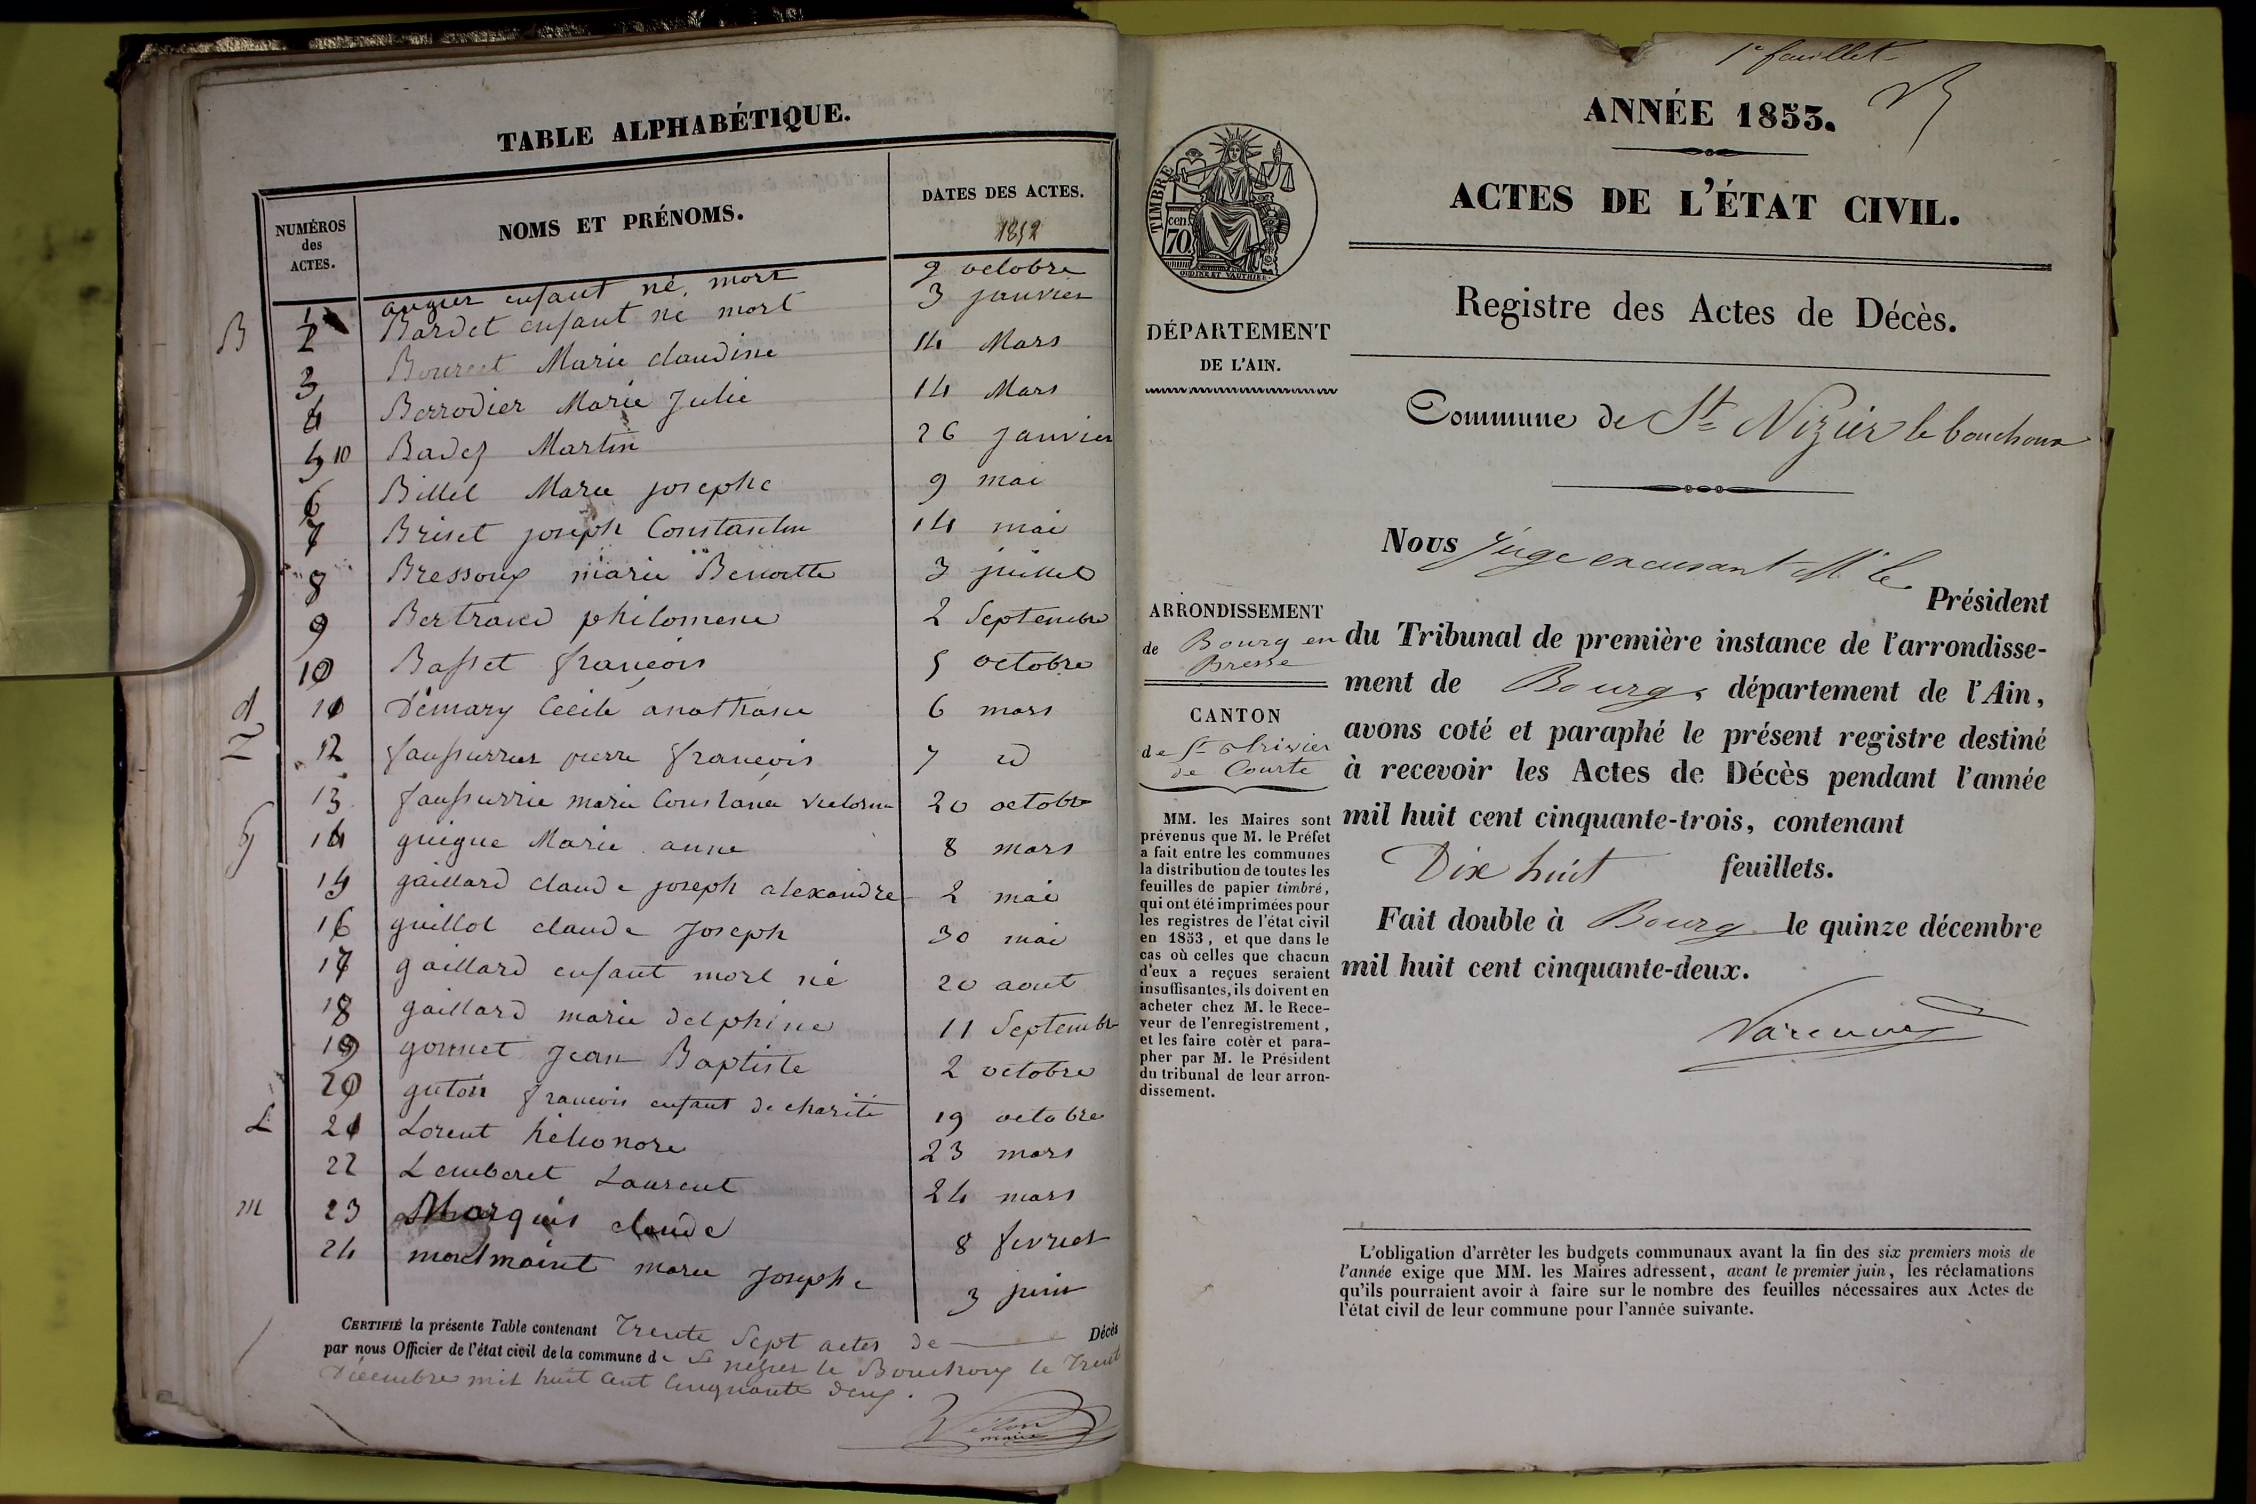 TABLE ALPHABÉTIQUE.
NUMÉROS des ACTES.
NOMS ET PRÉNOMS.
DATES DES ACTES.
1852
1 augier enfant né mort 9 octobre
B 2 Bardet enfant né mort 3 janvier
3 Bourcet Marie claudine 14 Mars
4 Berrodier Marie Julie 14 Mars
5 10 Badez Martin 26 janvier
6 Billet Marie josephe 9 mai
7 Briset joseph Constantin 14 mai
8 Bressoux marie Benoitte 3 juillet
9 Bertrand philomene 2 Septembre
10 Basset françois 5 octobre
d 11 Démary Cécile anathasie 6 mars
12 faussurrier pierre françois 7 id
13 faussurrie marie Constance victorine 20 octobre
g 14 guigue Marie anne 8 mars
15 gaillard claude joseph alexandre 2 mai
16 guillot claude Joseph 30 mai
17 gaillard enfant mort né 20 aout
18 gaillard marie delphine 11 Septembre
19 gonnet Jean Baptiste 2 octobre
20 guton françois enfant de charité 19 octobre
L 21 Lorent héleonore 23 mars
22 Lemberet Laurent 24 mars
m 23 Marquis claude 8 fevrier
24 montmaint marie Josephe 3 juin
CERTIFIÉ la présente Table contenant Trente Sept actes de Décès
par nous Officier de l'état civil de la commune de St nizier le Bouchoux le Trente
Décembre mil huit Cent Cinquante deux.
maire
1e feuillet
ANNÉE 1853.
ACTES DE L'ÉTAT CIVIL.
TIMBRE
70 cen
OUDINE ET VAUTHIER
Registre des Actes de Décès.
DÉPARTEMENT
DE L'AIN.
Commune de St Nizier le bouchoux
Nous Juge excusant Mr le Président
ARRONDISSEMENT
de Bourg en
Bresse
du Tribunal de première instance de l'arrondisse-
ment de Bourg, département de l'Ain,
CANTON
de St Trivier
de Courte
avons coté et paraphé le présent registre destiné
à recevoir les Actes de Décès pendant l'année
mil huit cent cinquante-trois, contenant
Dix huit feuillets.
Fait double à Bourg le quinze décembre
mil huit cent cinquante-deux.
MM. les Maires sont
prévenus que M. le Préfet
a fait entre les communes
la distribution de toutes les
feuilles de papier timbré,
qui ont été imprimées pour
les registres de l'état civil
en 1853, et que dans le
cas où celles que chacun
d'eux a reçues seraient
insuffisantes, ils doivent en
acheter chez M. le Rece-
veur de l'enregistrement,
et les faire coter et para-
pher par M. le Président
du tribunal de leur arron-
dissement.
L'obligation d'arrêter les budgets communaux avant la fin des six premiers mois de
l'année exige que MM. les Maires adressent, avant le premier juin, les réclamations
qu'ils pourraient avoir à faire sur le nombre des feuilles nécessaires aux Actes de
l'état civil de leur commune pour l'année suivante.